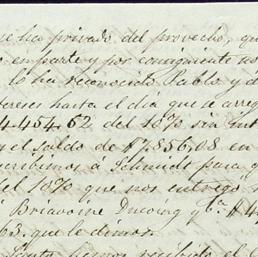 se ha privado del provecho, qu
en parte y por consiguiente no
lo ha reconocido Pablo y d
ereses hasta el dia que se arreg
4.454,62 del 1870 sin int
el saldo de $7.856,08 en
cribimos á Schmidt para q
del 1870 que nos entregó
Briavoine Ducoing y Ca $4
63. que le dimos.